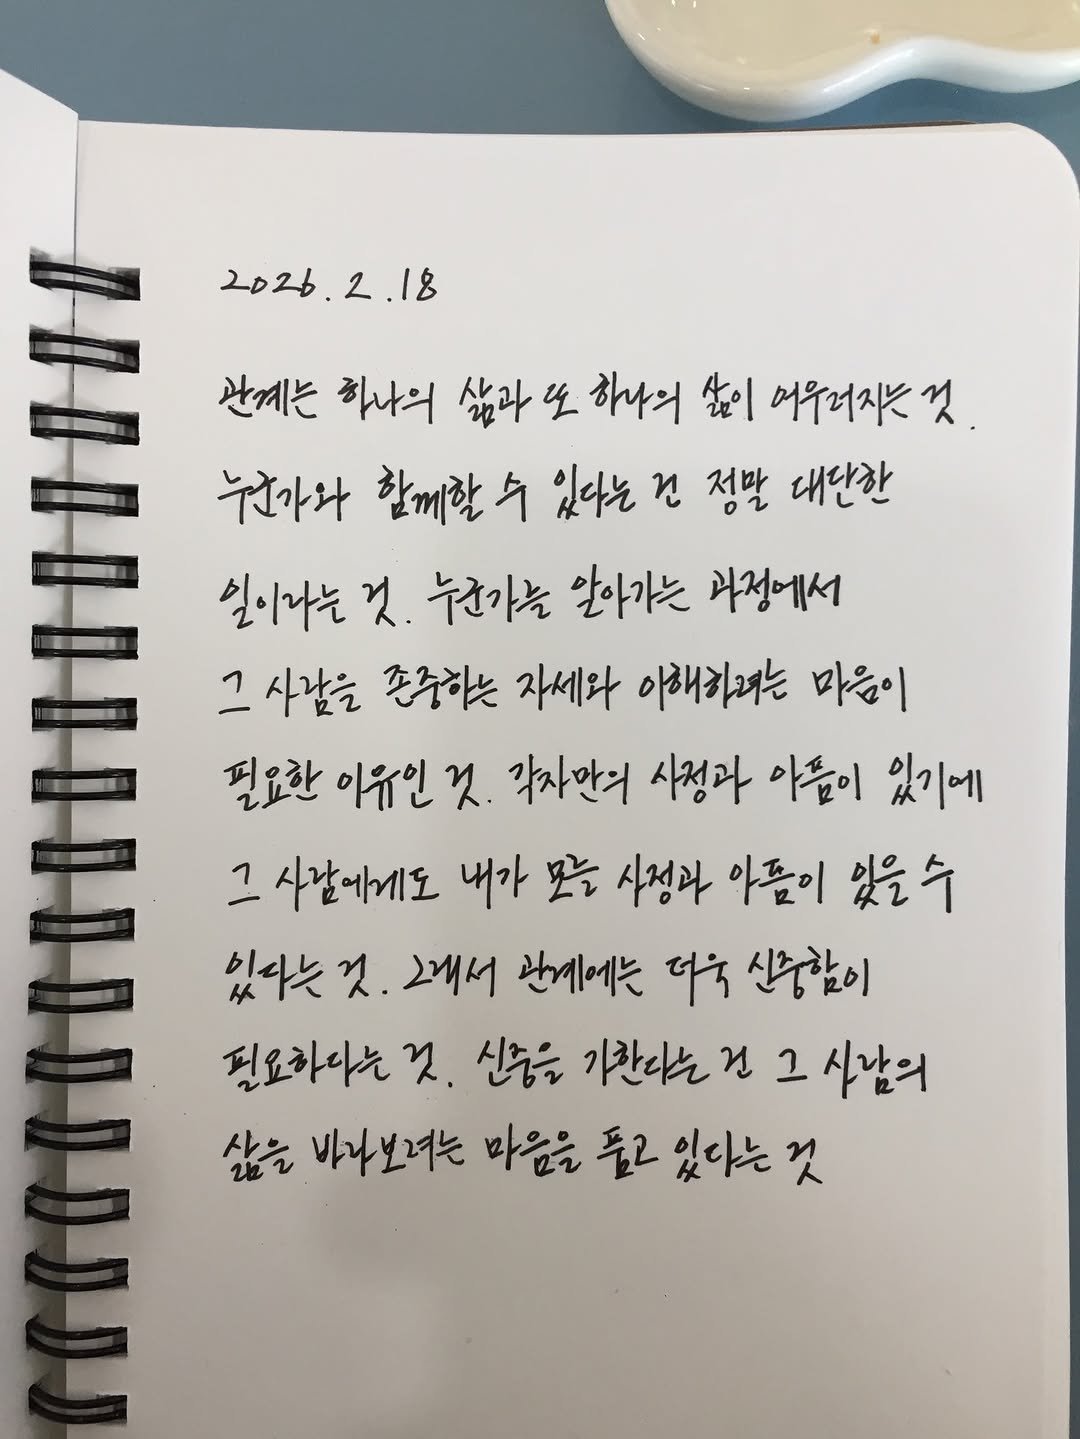 2026.2.18
관계는 하나의 삶과 또 하나의 삶이 어우러지는 것.
누군가와 함께할 수 있다는 건 정말 대단한
일이라는 것. 누군가를 알아가는 과정에서
그 사람을 존중하는 자세와 이해하려는 마음이
필요한 이유인 것. 각자만의 사정과 아픔이 있기에
그 사람에게도 내가 모를 사정과 아픔이 있을 수
있다는 것. 그래서 관계에는 더욱 신중함이
필요하다는 것. 신중을 가한다는 건 그 사람의
삶을 바라보려는 마음을 품고 있다는 것